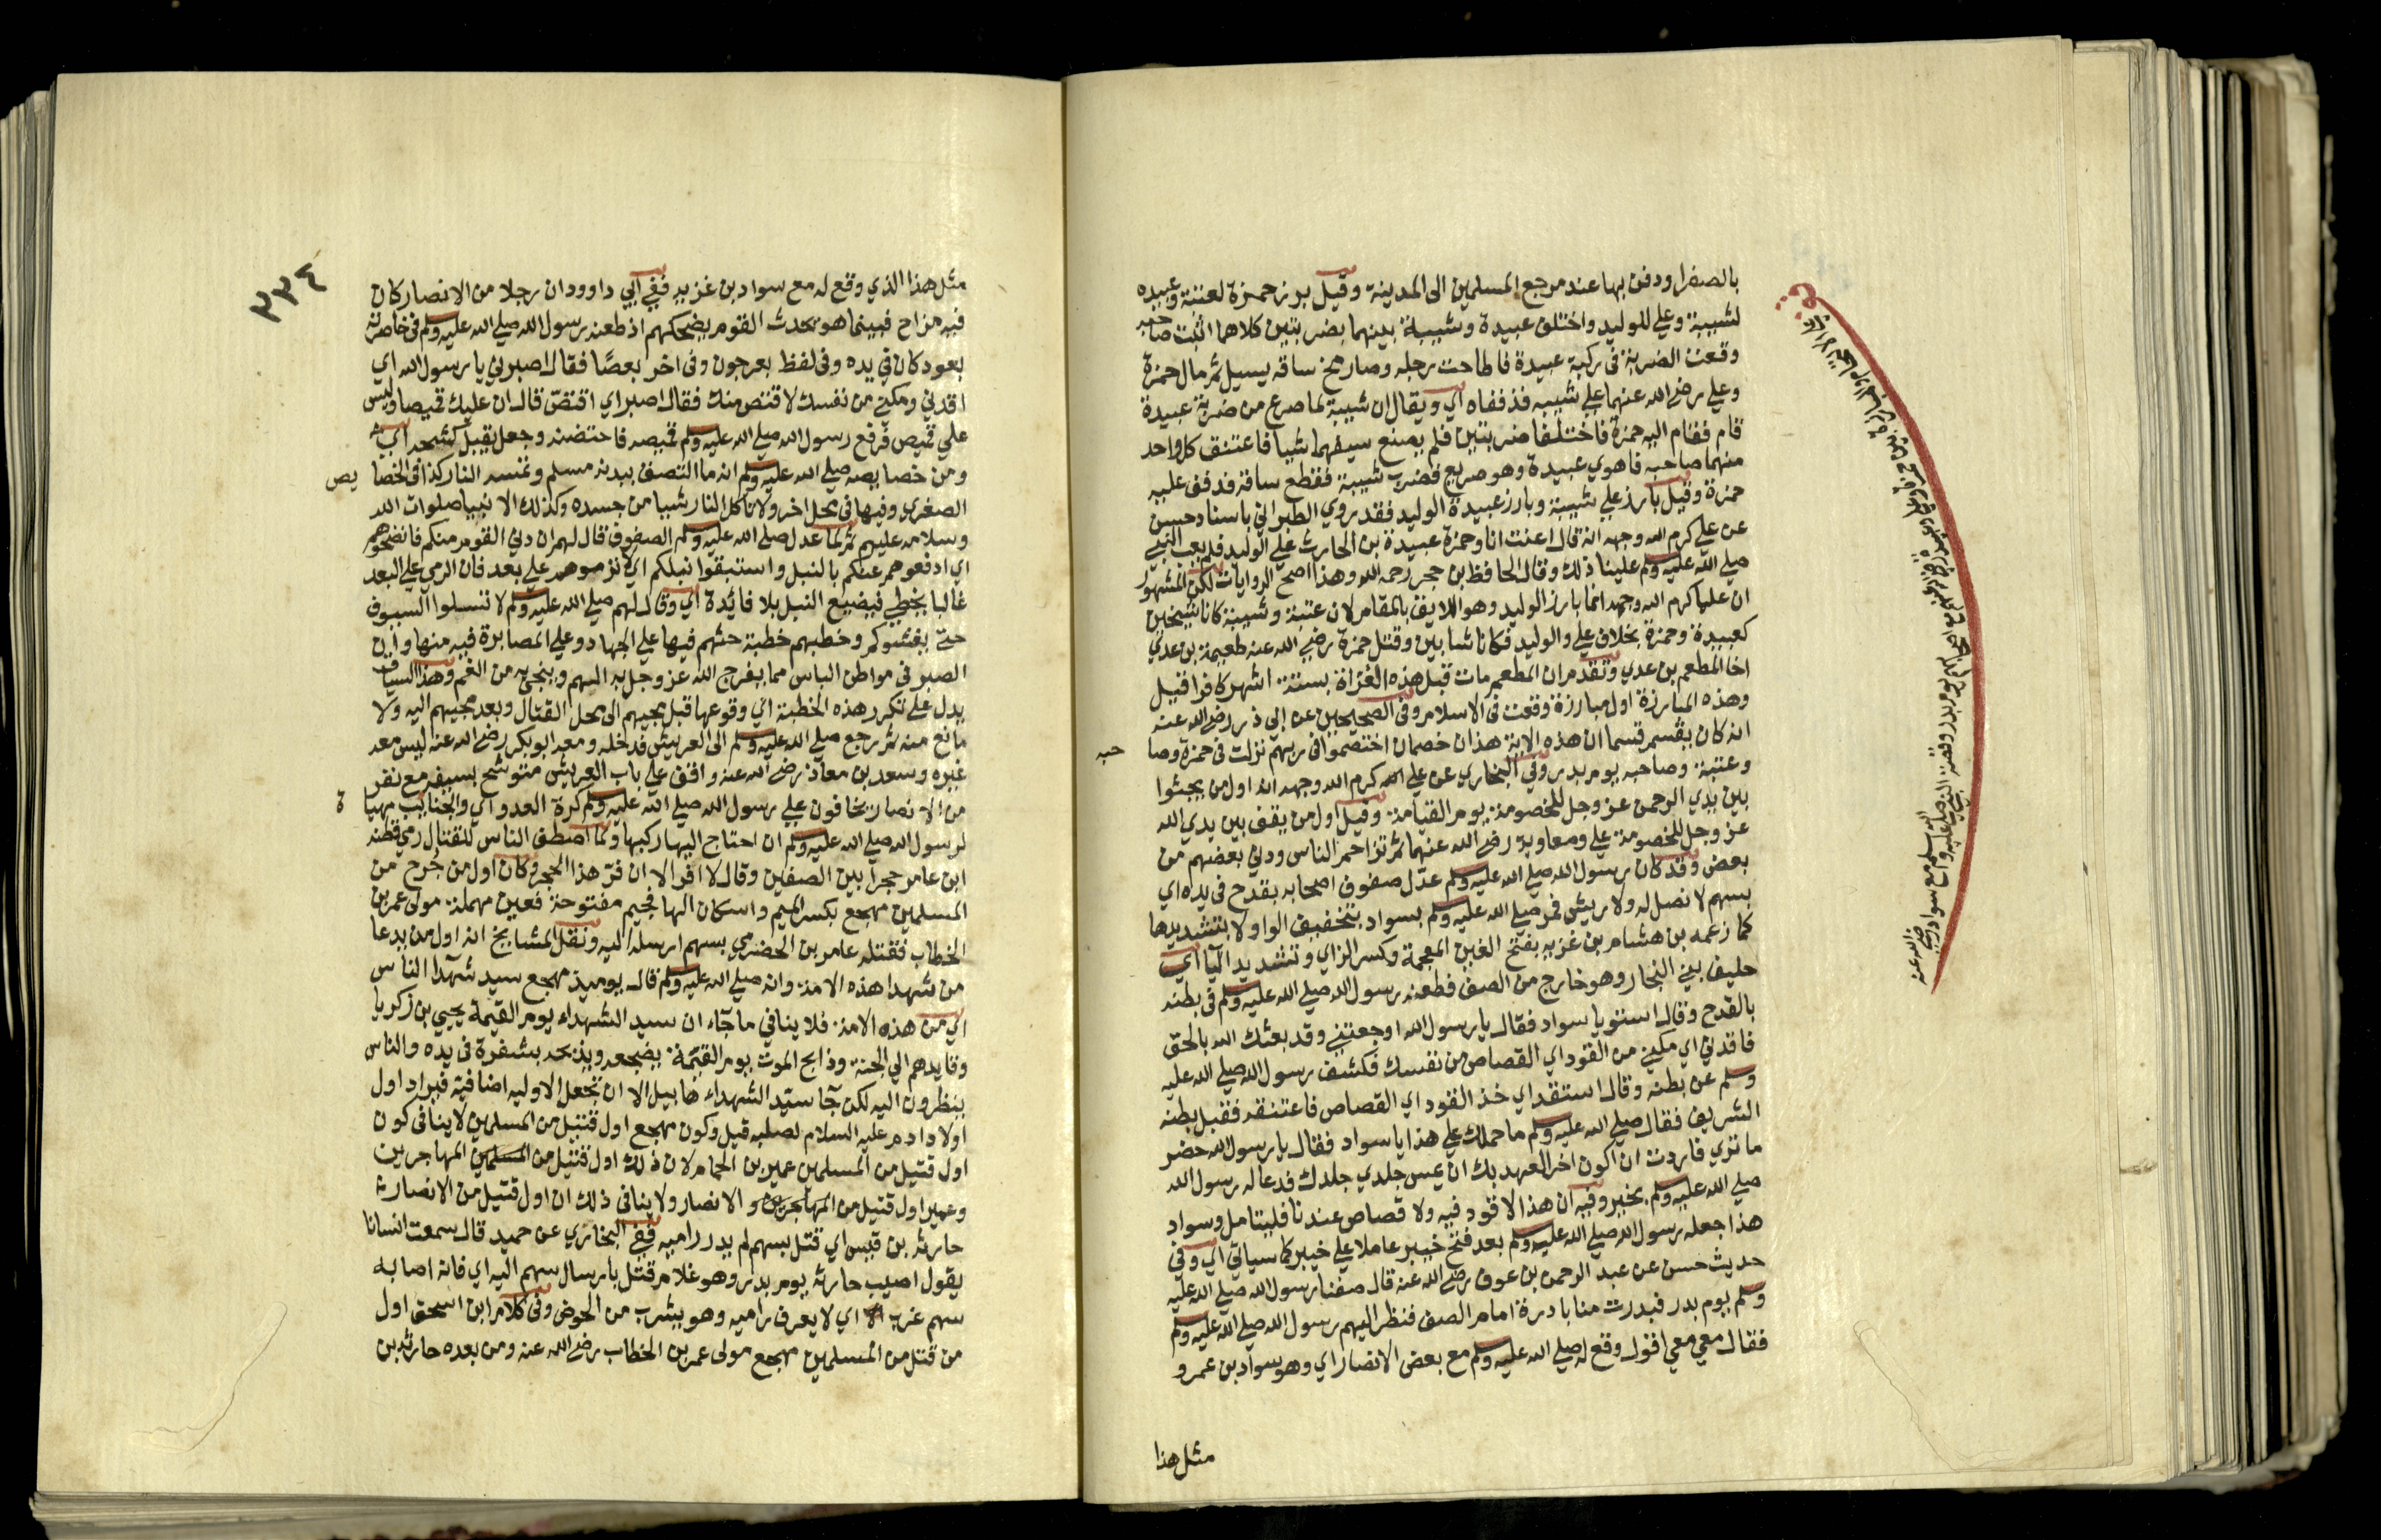 بالصفرا ودفن بها عند مرجع المسلمين الى المدينة وقيل برز حمزة لعتبة وعبيده
لشيبة وعلي للوليد واختلف عبيدة وشيبة بينهما بضربتين كلاهما اثبت صاحبه
وقعت الضربة فى ركبة عبيدة فاطاحت رجله وصار مخ ساقه يسيل ثم مال حمزة
وعلي رضي الله عنهما علي شيبه فذففاه اي ويقال ان شيبة لما صرع من ضربة عبيدة
قام فقام اليه حمزة فاختلفا ضربتين فلم يصنع سيفهما شيا فاعتنق كل واحد
منهما صاحبه فاهوي عبيدة وهو صريع فضرب شيبة فقطع ساقه فذفف عليه
حمزة وقيل بارز علي شيبة وبارز عبيدة الوليد فقد روي الطبراني باسناد حسن
عن علي كرم الله وجهه انه قال اعنت انا وحمزة عبيدة بن الحارث علي الوليد فلم يعب النبي
صلي الله عليه وسلم علينا ذلك وقال الحافظ بن حجر رحمه الله وهذا اصح الروايات لكن المشهور
ان عليا كرم الله وجهه انما بارز الوليد وهو اللايق بالمقام لان عتبة وشيبة كانا شيخين
كعبيدة وحمزة بخلاف علي والوليد فكانا شابين وقتل حمزة رضي الله عنه طعيمة بن عدي
اخا المطعم بن عدي وتقدم ان المطعم مات قبل هذه الغزاة بستة اشهر كافرا قيل
وهذه المبارزة اول مبارزة وقعت فى الاسلام وفى الصحيحين عن ابي ذر رضي الله عنه
انه كان يقسم قسما ان هذه الاية هذان خصمان اختصموا فى ربهم نزلت فى حمزة وصاحبه
وعتبة وصاحبه يوم بدر وفي البخاري عن علي كرم الله وجهه انه اول من يجثوا
بين يدي الرحمن عز وجل للخصومة يوم القيامة وقيل اول من يقف بين يدي الله
عز وجل للخصومة علي ومعاوية رضي الله عنهما ثم تزاحم الناس ودني بعضهم من
بعض وقد كان رسول الله صلي الله عليه وسلم عدّل صفوف اصحابه بقدح في يده اي
بسهم لا نصل له ولا ريش فمر صلي الله عليه وسلم بسواد بتخفيف الواو لا بتشديدها
كما زعمه بن هشام بن غزيه بفتح الغين المعجمة وكسر الزاي وتشديد اليا اي
حليف بني النجار وهو خارج من الصف فطعنه رسول الله صلي الله عليه وسلم فى بطنه
بالقدح وقال استو يا سواد فقال يا رسول الله اوجعتني وقد بعثك الله بالحق
فاقدني اي مكني من القود اي القصاص من نفسك فكشف رسول الله صلي الله عليه
وسلم عن بطنه وقال استقد اي خذ القود اي القصاص فاعتنقه فقبل بطنه
الشريف فقال صلي الله عليه وسلم ما حملك علي هذا يا سواد فقال يا رسول الله حضر
ما تري فاردت ان اكون اخر العهد بك ان يمس جلدي جلدك فدعا له رسول الله
صلي الله عليه وسلم بخير وفيه ان هذا لا قود فيه ولا قصاص عندنا فليتامل وسواد
هذا جعله رسول الله صلي الله عليه وسلم بعد فتح خيبر عاملا علي خيبر كما سياتي اي وفي
حديث حسن عن عبد الرحمن بن عوف رضي الله عنه قال صفنا رسول الله صلي الله عليه
وسلم يوم بدر فبدرت منا بادرة امام الصف فنظر اليهم رسول الله صلي الله عليه وسلم
فقال معي معي اقول وقع له صلي الله عليه وسلم مع بعض الانصار اي وهو سواد بن عمرو
مثل هذا
٢٣٤
مثل هذا الذي وقع له مع سواد بن غزيه ففي ابي داوود ان رجلا من الانصار كان
فيه مزاح فبينما هو يحدث القوم يضحكهم اذ طعنه رسول الله صلي الله عليه وسلم فى خاصرته
بعود كان في يده وفى لفظ بعرجون وفى اخر بعصًا فقال اصبرني يا رسول الله اي
اقدني ومكني من نفسك لاقتص منك فقال اصبر اي اقتصّ قال ان عليك قميصا وليس
علي قميص فرفع رسول الله صلي الله عليه وسلم قميصه فاحتضنه وجعل يقبل كشحه اي
ومن خصايصه صلي الله عليه وسلم انه ما التصق ببدنه مسلم وتمسه النار كذا فى الخصايص
الصغرى وفيها فى محل اخر ولا تاكل النار شيا من جسده وكذلك الانبيا صلوات الله
وسلامه عليهم ثم لما عدل صلي الله عليه وسلم الصفوف قال لهم ان دني القوم منكم فانضحوهم
اي ادفعوهم عنكم بالنبل واستبقوا نبلكم اي لا ترموهم علي بعد فان الرمي علي البعد
غالبا يخطي فيضيع النبل بلا فايدة اي وقال لهم صلي الله عليه وسلم لا تسلوا السيوف
حتي يغشوكم وخطبهم خطبة حثهم فيها علي الجهاد وعلي المصابرة فيه منها وان
الصبر فى مواطن الباس مما يفرج الله عز وجل به الهم وينجي به من الغم وهذا السياق
يدل علي تكرر هذه الخطبة اي وقوعها قبل مجيهم الى محل القتال وبعد مجيهم اليه ولا
مانع منه ثم رجع صلي الله عليه وسلم الى العريش فدخله ومعه ابو بكر رضي الله عنه ليس معه
غيره وسعد بن معاذ رضي الله عنه واقف علي باب العريش متوشح بسيفه مع نفر
من الانصار يخافون علي رسول الله صلي الله عليه وسلم كرة العدو اي والجنايب مهياة
لرسول الله صلي الله عليه وسلم ان احتاج اليها ركبها ولما اصطف الناس للقتال رمي قطبه
ابن عامر حجرا بين الصفين وقال لا افر الا ان فرّ هذا الحجر وكان اول من جرح من
المسلمين مهجع بكسر الميم واسكان الها فجيم مفتوحة فعين مهملة مولى عمر بن
الخطاب فقتله عامر بن الحضرمي بسهم ارسله اليه ونقل المشايخ انه اول من يدعا
من شهدا هذه الامة وانه صلي الله عليه وسلم قال يوميذ مهجع سيد شهدآ الناس
اي من هذه الامة فلا ينافي ما جآء ان سيد الشهداء يوم القيمة يحيي بن زكريا
وقايدهم الي الجنة وذابح الموت يوم القيمة يضجعه ويذبحه بشفرة فى يده والناس
ينظرون اليه لكن جآ سيّد الشهداء هابيل الا ان تجعل الاوليه اضافية فيراد اول
اولاد ادم عليه السلام لصلبه قيل وكون مهجع اول قتيل من المسلمين لا ينافى كون
اول قتيل من المسلمين عمير بن الحمام لان ذلك اول قتيل من المسلمين المهاجرين
وعمير اول قتيل من المهاجرين و الانصار ولا ينافى ذلك ان اول قتيل من الانصار
حارثة بن قيس اي قتل بسهم لم يدر راميه ففي البخاري عن حميد قال سمعت انسانا
يقول اصيب حارثه يوم بدر وهو غلام قتل بارسال سهم اليه اي فانه اصابه
سهم غرب اي لا يعرف راميه وهو يشرب من الحوض وفى كلام ابن اسحق اول
من قتل من المسلمين مهجع مولى عمر بن الخطاب رضي الله عنه ومن بعده حارثة بن